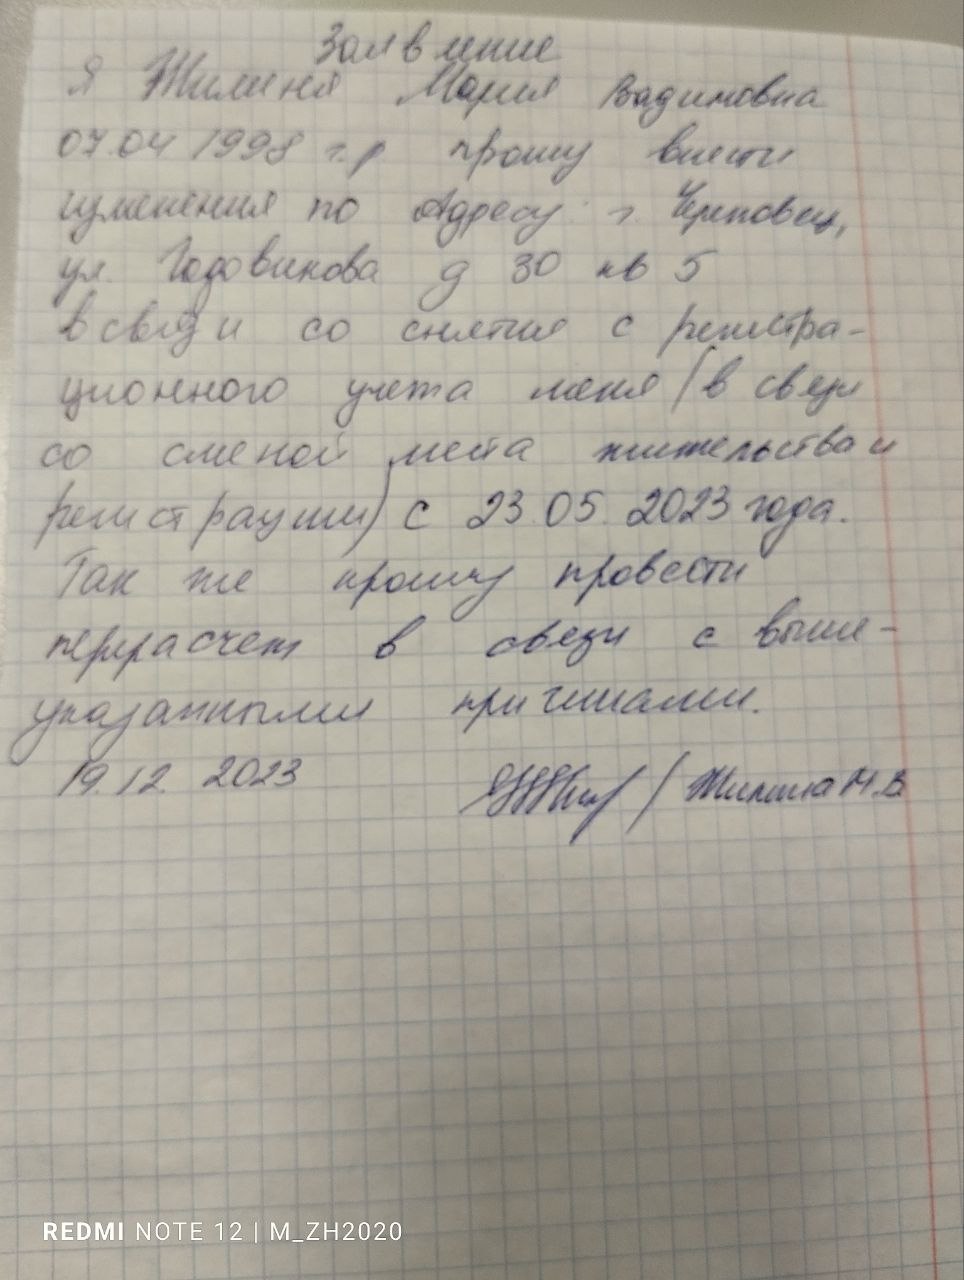 Заявление
Я Жилина Мария Вадимовна
07.04 1998 г.р прошу внести
изменения по Адресу: г Череповец,
ул. Годовикова д 30 кв 5
в связи со снятия с регистра-
ционного учета меня (в связи
со сменой места жительства и
регистрации) с 23.05.2023 года.
Так же прошу провести
перерасчет в связи с выше-
указанными причинами.
19.12.2023 / Жилина М.В
REDMI NOTE 12 | M_ZH2020